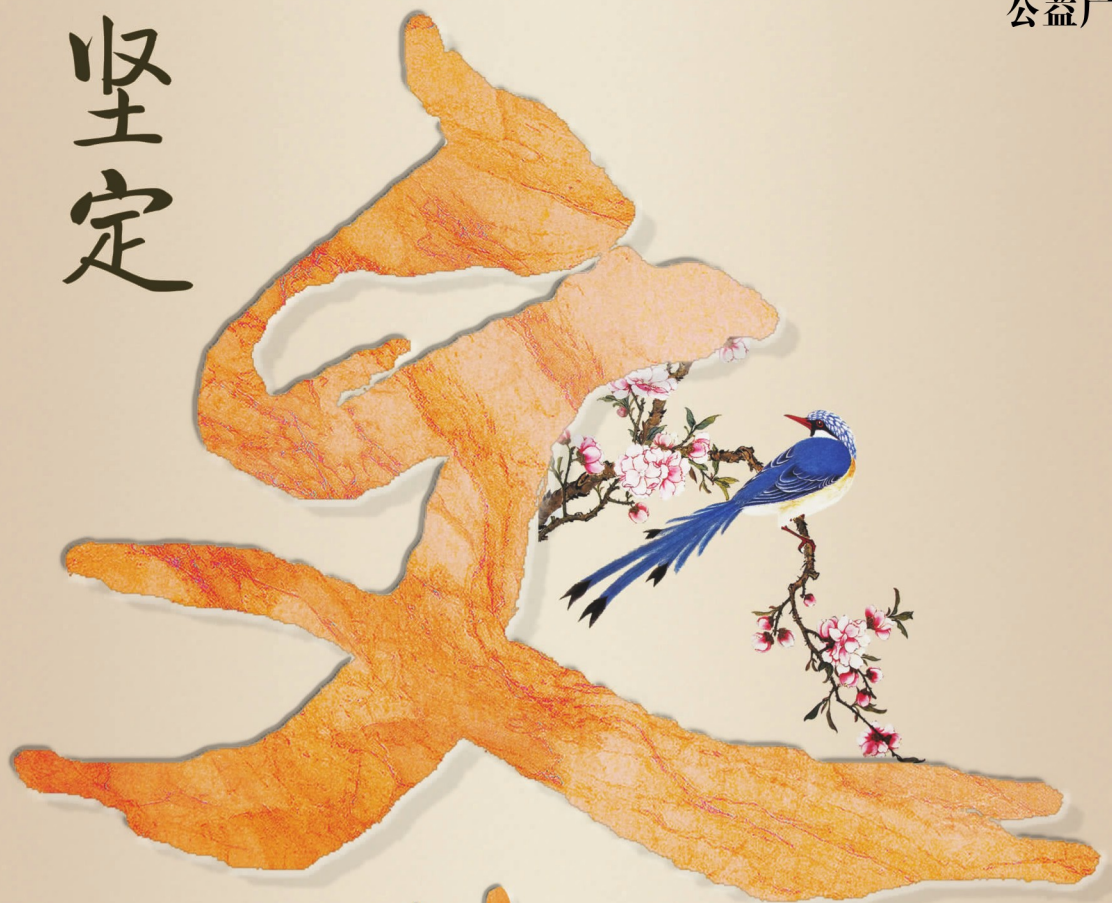 公益广
坚定
文